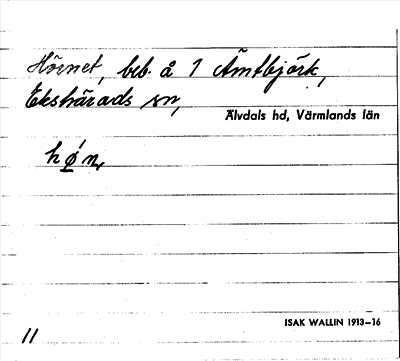 Hörnet, beb. å 1 Ämtbjörk,
Ekshärads sn,
Älvdals hd, Värmlands län
ISAK WALLIN 1913–16
11